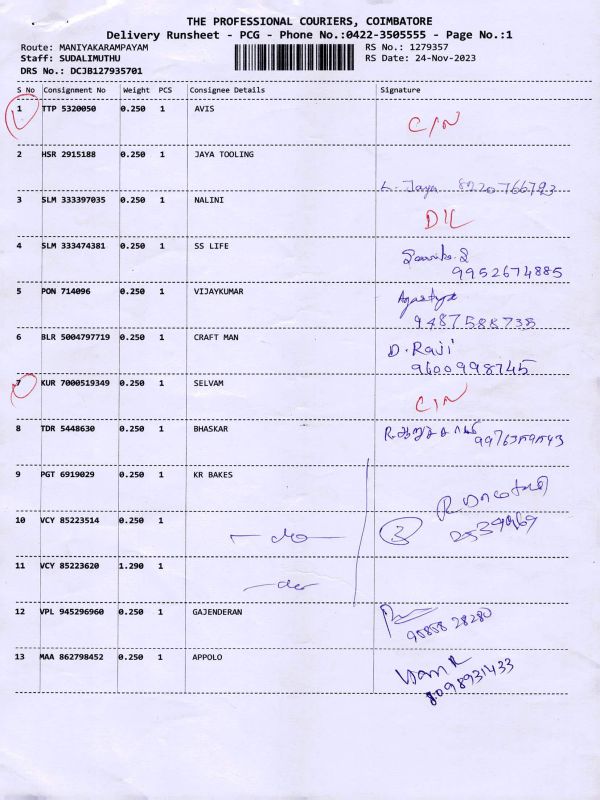 THE PROFESSIONAL COURIERS, COIMBATORE
Delivery Runsheet - PCG - Phone No.:0422-3505555 - Page No.:1
Route: MANIYAKARAMPAYAM RS No.: 1279357
Staff: SUDALIMUTHU RS Date: 24-Nov-2023
DRS No.: DCJB127935701
S No Consignment No Weight PCS Consignee Details Signature
1 TTP 5320050 0.250 1 AVIS C/N
2 HSR 2915188 0.250 1 JAYA TOOLING
L. Jaya 8220766793
3 SLM 333397035 0.250 1 NALINI D/L
4 SLM 333474381 0.250 1 SS LIFE
9952674885
5 PON 714096 0.250 1 VIJAYKUMAR
9487588738
6 BLR 5004797719 0.250 1 CRAFT MAN D. Raji
9600998745
7 KUR 7000519349 0.250 1 SELVAM C/N
8 TDR 5448630 0.250 1 BHASKAR
9 PGT 6919029 0.250 1 KR BAKES
10 VCY 85223514 0.250 1 -do- 3
11 VCY 85223620 1.290 1 -do-
12 VPL 945296960 0.250 1 GAJENDERAN
95858 28280
13 MAA 862798452 0.250 1 APPOLO
8098931433